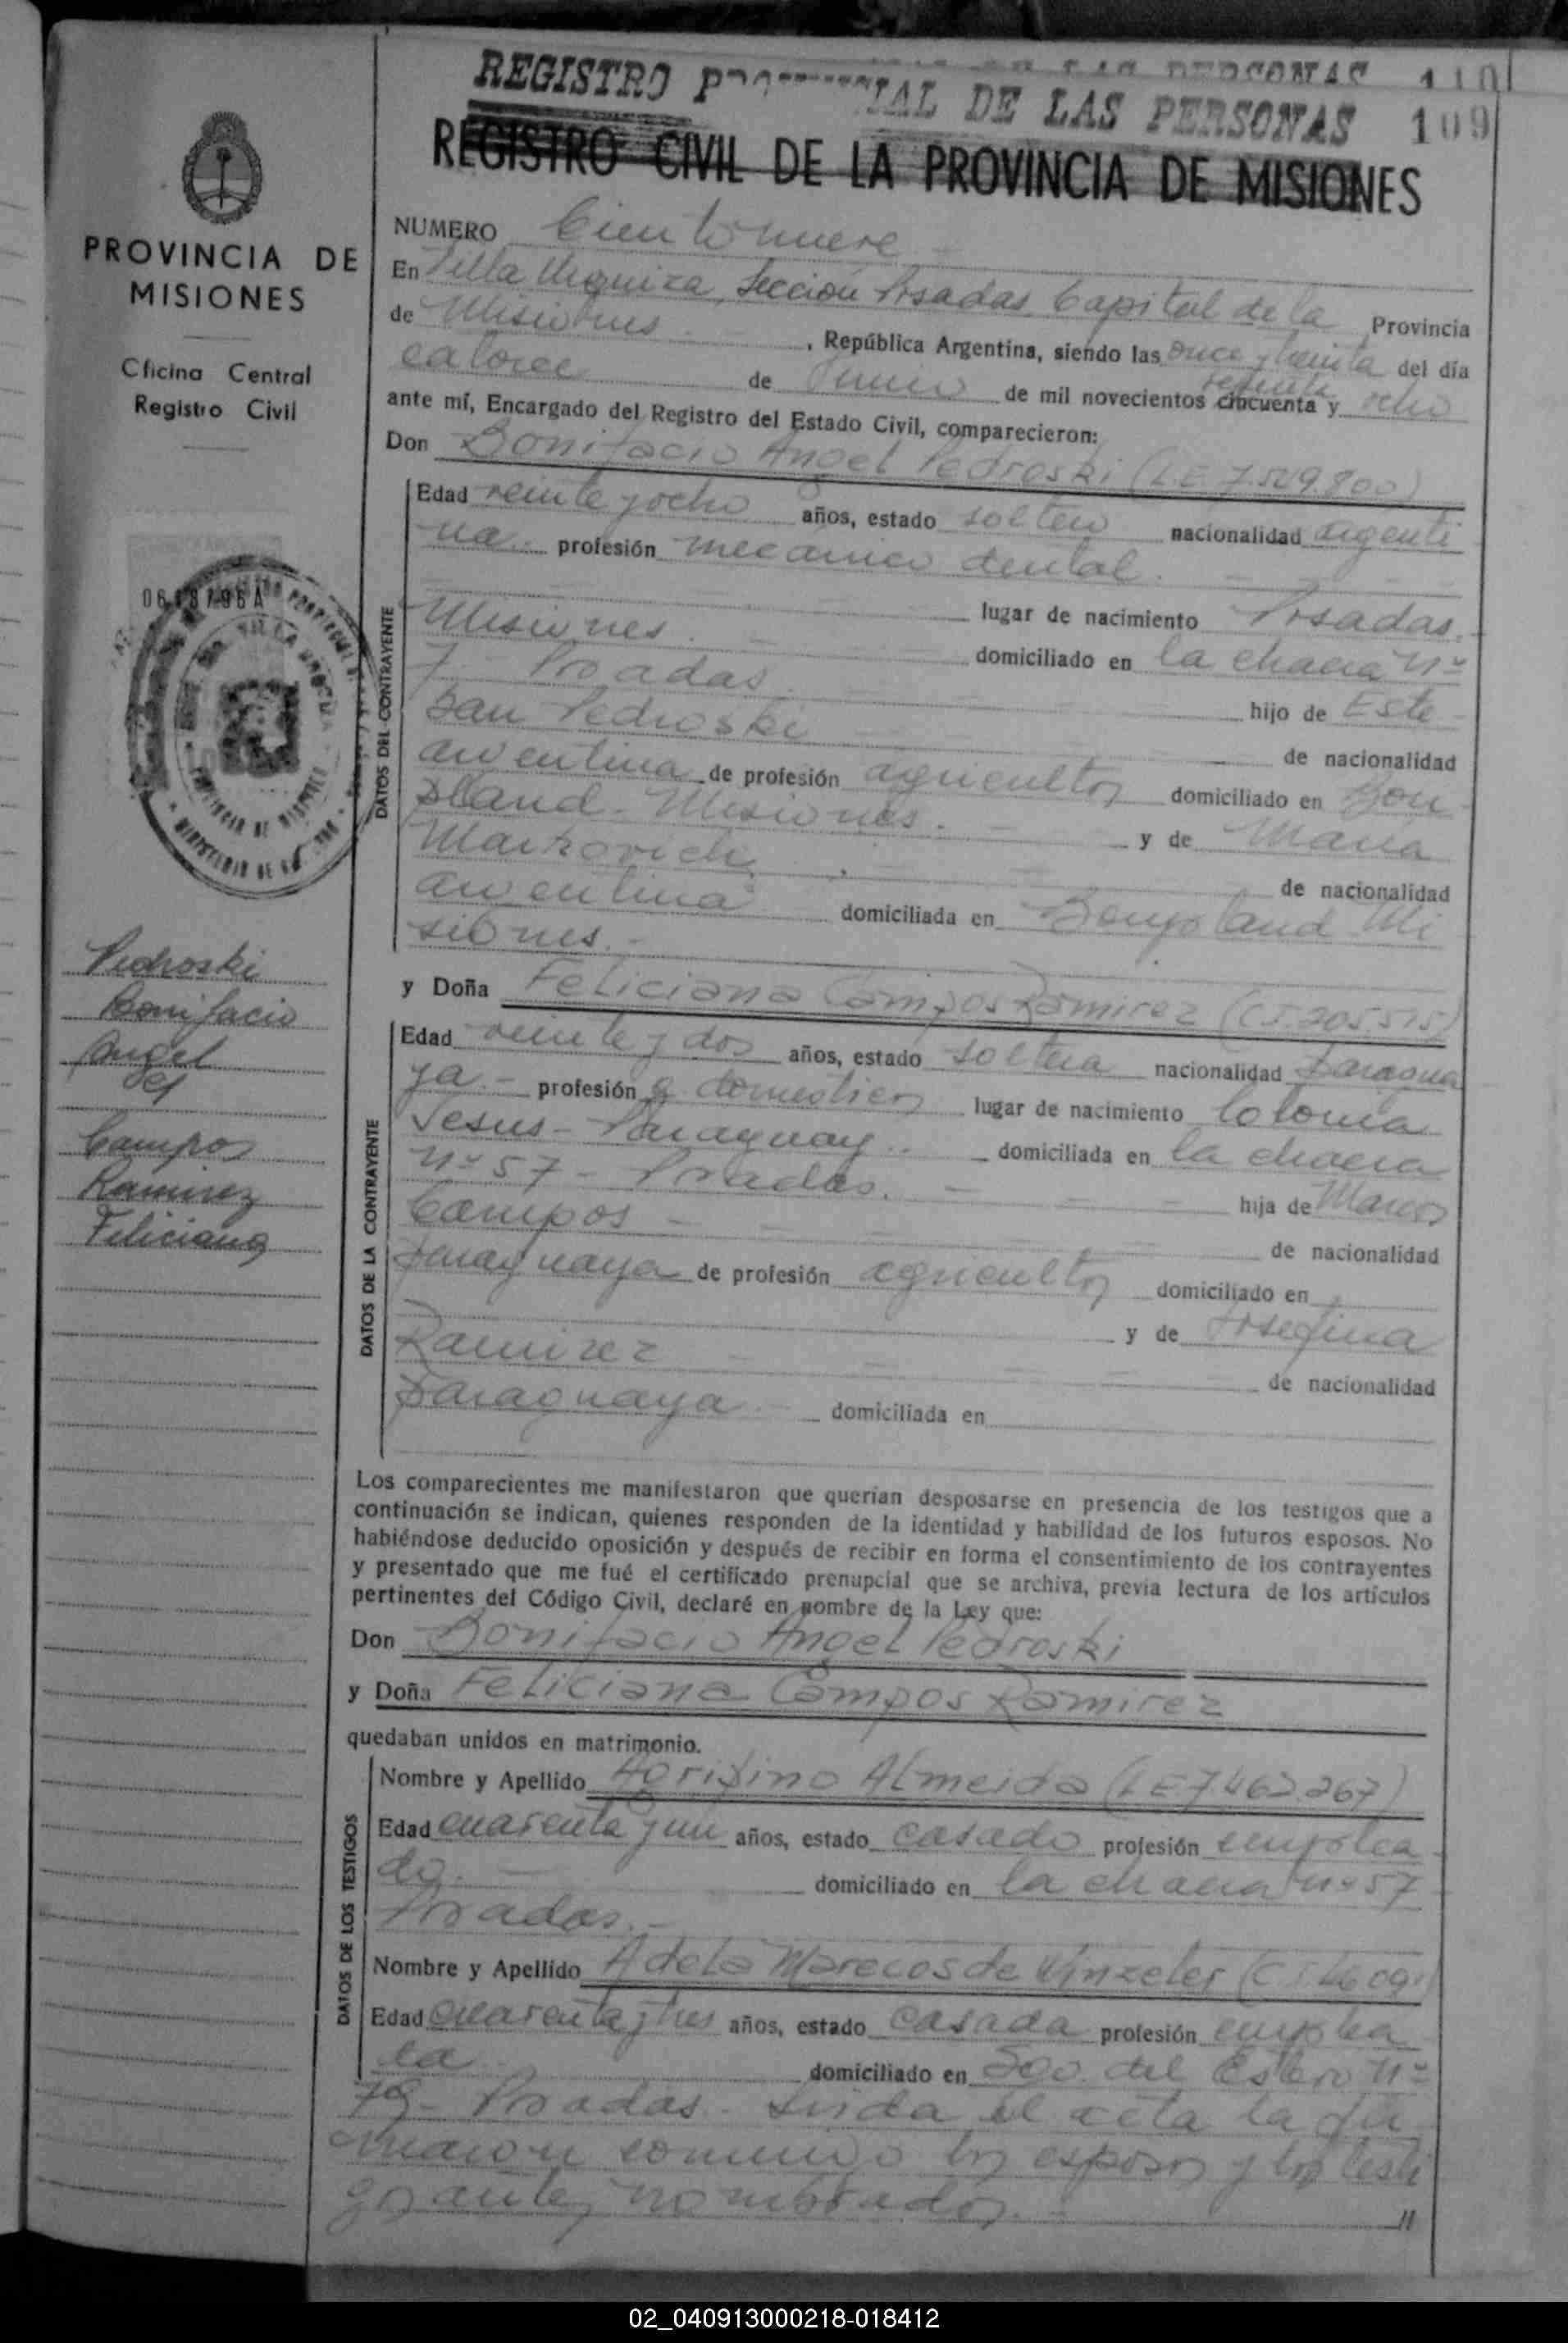 REGISTRO PROVINCIAL DE LAS PERSONAS 109
110
REGISTRO CIVIL DE LA PROVINCIA DE MISIONES
PROVINCIA DE
MISIONES
Oficina Central
Registro Civil
NUMERO Ciento nueve
En Villa Urquiza, Sección Posadas Capital de la Provincia
de Misiones. , República Argentina, siendo las once y treinta del día
catorce de Junio de mil novecientos cincuenta y ocho
ante mí, Encargado del Registro del Estado Civil, comparecieron:
Don Bonifacio Angel Pedroski (L.E. 7.549.800)
DATOS DEL CONTRAYENTE
Edad veinte y ocho años, estado soltero nacionalidad argenti
na. profesión mecánico dental.
lugar de nacimiento Posadas.
Misiones. domiciliado en la chacra nº
7 - Posadas. hijo de Este
ban Pedroski de nacionalidad
argentina de profesión agricultor domiciliado en Bon
pland - Misiones. y de María
Markovich de nacionalidad
argentina domiciliada en Bonpland Mi
siones.-
Pedroski
Bonifacio
Angel
Campos
Ramirez
Feliciana
y Doña Feliciana Campos Ramirez (C.I. 205.515)
DATOS DE LA CONTRAYENTE
Edad veinte y dos años, estado soltera nacionalidad paragua
ya.- profesión q. domésticos lugar de nacimiento Colonia
Jesus - Paraguay.. domiciliada en la chacra
nº 57 - Posadas. hija de Marcos
Campos de nacionalidad
paraguaya de profesión agricultor domiciliado en
y de Josefina
Ramirez de nacionalidad
paraguaya domiciliada en
Los comparecientes me manifestaron que querían desposarse en presencia de los testigos que a
continuación se indican, quienes responden de la identidad y habilidad de los futuros esposos. No
habiéndose deducido oposición y después de recibir en forma el consentimiento de los contrayentes
y presentado que me fué el certificado prenupcial que se archiva, previa lectura de los artículos
pertinentes del Código Civil, declaré en nombre de la Ley que:
Don Bonifacio Angel Pedroski
y Doña Feliciana Campos Ramirez
quedaban unidos en matrimonio.
DATOS DE LOS TESTIGOS
Nombre y Apellido Agripino Almeida (L.E. 7.462.267)
Edad cuarenta y un años, estado casado profesión emplea
do.- domiciliado en la chacra nº 57
Posadas.-
Nombre y Apellido Adela Marecos de
Edad cuarenta y tres años, estado casada profesión emplea
da domiciliado en Sgo. del Estero nº
79 - Posadas. Leida el acta la fir
maron conmigo los esposos y los testi
gos antes nombrados.
02_040913000218-018412